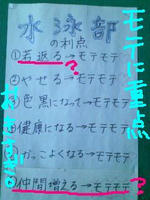 水泳部
の利点
①若返る→モテモテ
?
②やせる→モテモテ
③色黒になって→モテモテ
④健康になる→モテモテ
⑤かっこよくなる→モテモテ
⑥仲間増える→モテモテ
?
モテに重点